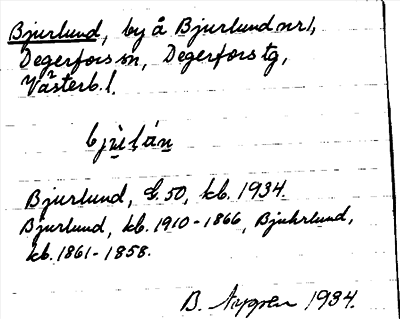 Bjurlund, by å Bjurlund nr 1,
Degerfors sn, Degerfors tg,
Västerb. l.
Bjurlund, G. 50, kb. 1934.
Bjurlund, kb. 1910-1866, Bjuhrlund,
kb. 1861-1858.
B. Nygren 1934.